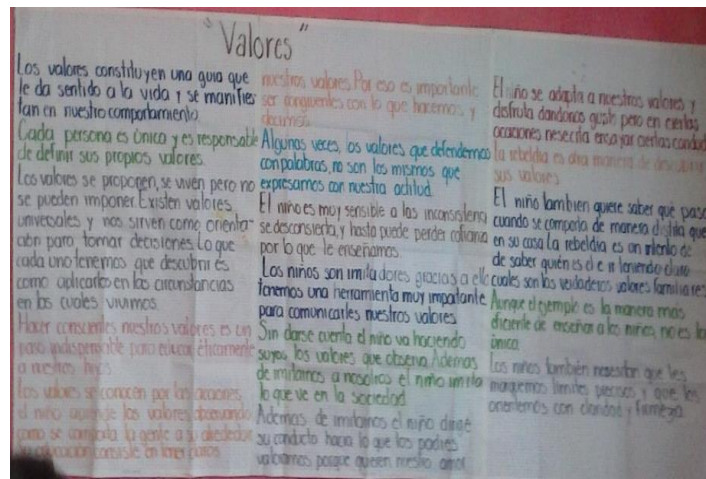 "Valores"
Los valores constituyen una guia que
le da sentido a la vida y se manifies
tan en nuestro comportamiento.
Cada persona es único y es responsable
de definir sus propios valores.
Los valores se proponen, se viven pero no
se pueden imponer. Existen valores
universales y nos sirven como orienta
ción para tomar decisiones. Lo que
cada uno tenemos que descubrir es
como aplicarlos en las circunstancias
en las cuales vivimos.
Hacer conscientes nuestros valores es un
paso indispensable para educar éticamente
a nuestros hijos.
Los valores se conocen por las acciones,
el niño aprende los valores observando
como se comporta la gente a su alrededor
la educación consiste en tener claros
nuestros valores. Por eso es importante
ser congruentes con lo que hacemos y
decimos.
Algunas veces, os valores que defendemos
con palabras, no son los mismos que
expresamos con nuestra actitud.
El niño es muy sensible a las inconsistencia
se desconsierta, y hasta puede perder
por lo que le enseñamos.
Los niños son imitadores gracias a ello
tenemos una herramienta muy importante
para comunicarles nuestros valores
Sin darse cuenta el niño va haciendo
suyos los valores que observa. Ademas
de imitarnos a nosotros el niño imita
lo que ve en la sociedad.
Ademas de imitarnos el niño dirige
su conducta hacia lo que los padres
valoramos porque quieren nuestro amor.
El niño se adapta a nuestros valores y
disfruta dandonos gusto pero en ciertas
ocaciones nesecita ensayar ciertas conduct
la rebeldia es otra manera de descubrir
sus valores
El niño tambien quiere saber que pasa
cuando se comporta de manera distita que
en su casa la rebeldia es un intento de
de saber quién es el e ir teniendo claro
cuales son los verdaderos valores familiares
Aunque el ejemplo es la manera más
eficiente de enseñar a los niños, no es la
única.
Los niños también necesitan que les
marquemos limites precisos y que les
orientemos con claridad y firmeza.